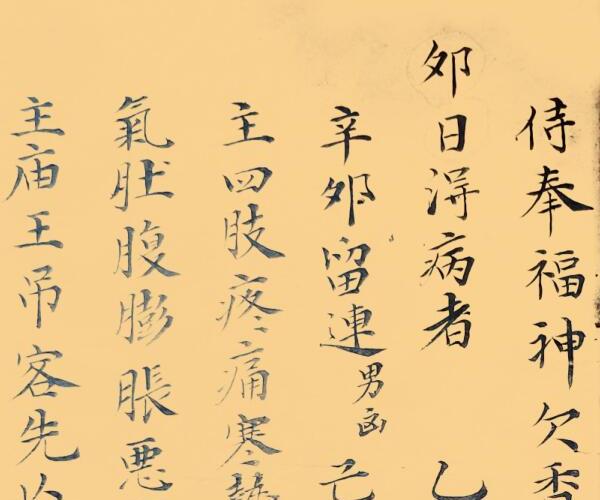 侍奉福神欠香
夘日淂病者 乙
辛夘留連男凶亡
主四肢疼痛寒熱
氣肚腹膨脹悪
主庙王吊客先